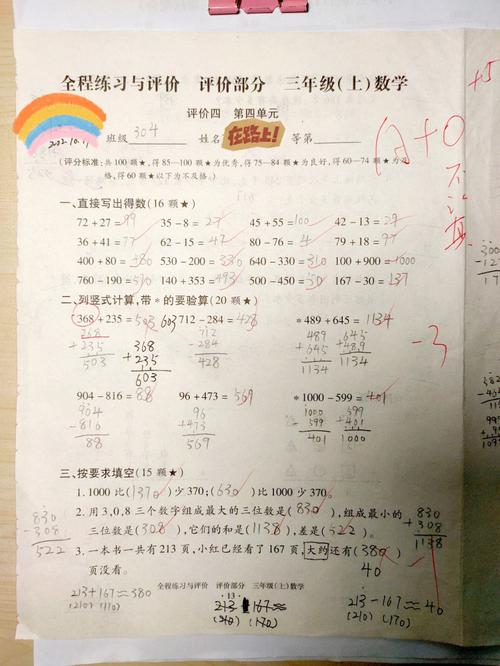 全程练习与评价 评价部分 三年级(上)数学
评价四 第四单元
2022.10.11
班级 304 姓名 在路上! 等第
+5
不认真
(评分标准:共 100 颗★,得 85—100 颗★为优秀,得 75—84 颗★为良好,得 60—74 颗★为及
格,得 60 颗★以下为不及格。)
一、直接写出得数(16 颗★)
72 + 27 = 99 35 - 8 = 27 45 + 55 = 100 42 - 13 = 29
36 + 41 = 77 62 - 15 = 47 80 - 76 = 4 79 + 18 = 97
400 + 80 = 480 530 - 200 = 330 640 - 330 = 310 100 + 900 = 1000
760 - 190 = 570 140 + 353 = 493 500 - 450 = 50 167 - 30 = 137
二、列竖式计算,带 * 的要验算(20 颗★)
368 + 235 = 503 603 712 - 284 = 428 * 489 + 645 = 1134
368 368 712 489 645
+235 +235 -284 +645 +489
503 603 428 1134 1134
-3
904 - 816 = 88 96 + 473 = 569 * 1000 - 599 = 401
904 96 1000 599
-816 +473 -599 +401
88 569 401 1000
三、按要求填空(15 颗★)
1. 1000 比(1370)少 370;(630)比 1000 少 370。
2. 用 3,0,8 三个数字组成最大的三位数是(830),组成最小的
三位数是(308),它们的和是(1138),差是(522)。
830
-308
522
830
+308
1138
3. 一本书一共有 213 页,小红已经看了 167 页,大约还有(380)
40
页没看。
全程练习与评价 评价部分 三年级(上)数学
· 13 ·
213+167≈380
(210) (170)
213 167≈
(210) (170)
213-167≈40
(210) (170)